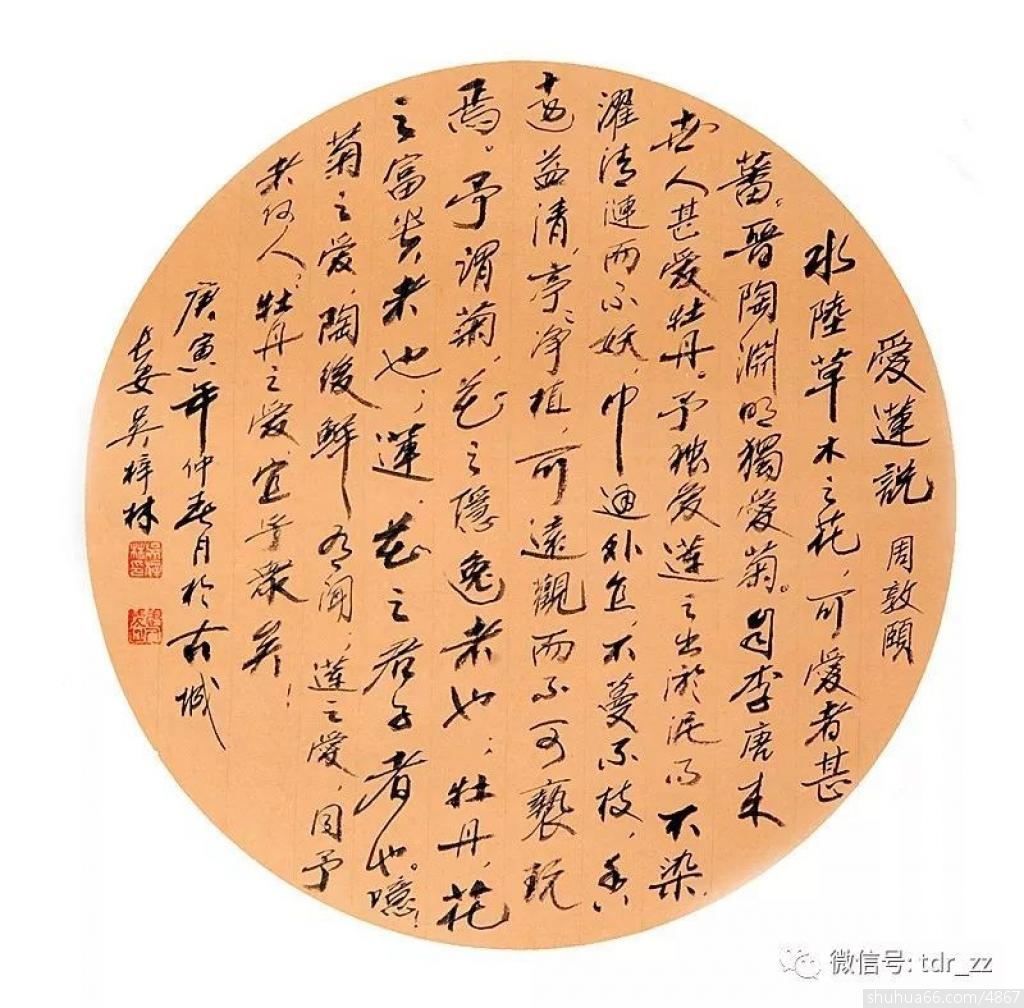 愛蓮說 周敦頤
水陸草木之花，可愛者甚
蕃。晉陶淵明獨愛菊。自李唐来
世人甚愛牡丹。予独爱蓮之出淤泥而不染
濯清漣而不妖，中通外直，不蔓不枝，香
遠益清，亭々净植，可遠觀而不可褻玩
焉。予謂菊，花之隱逸者也；牡丹，花
之富贵者也；蓮，花之君子者也。噫！
菊之愛，陶後鮮有闻；蓮之愛，同予
者何人？牡丹之愛，宜乎衆矣！
庚寅年仲春月於古城
長安吴梓林
微信号: tdr_zz
shuhua66.com/4867